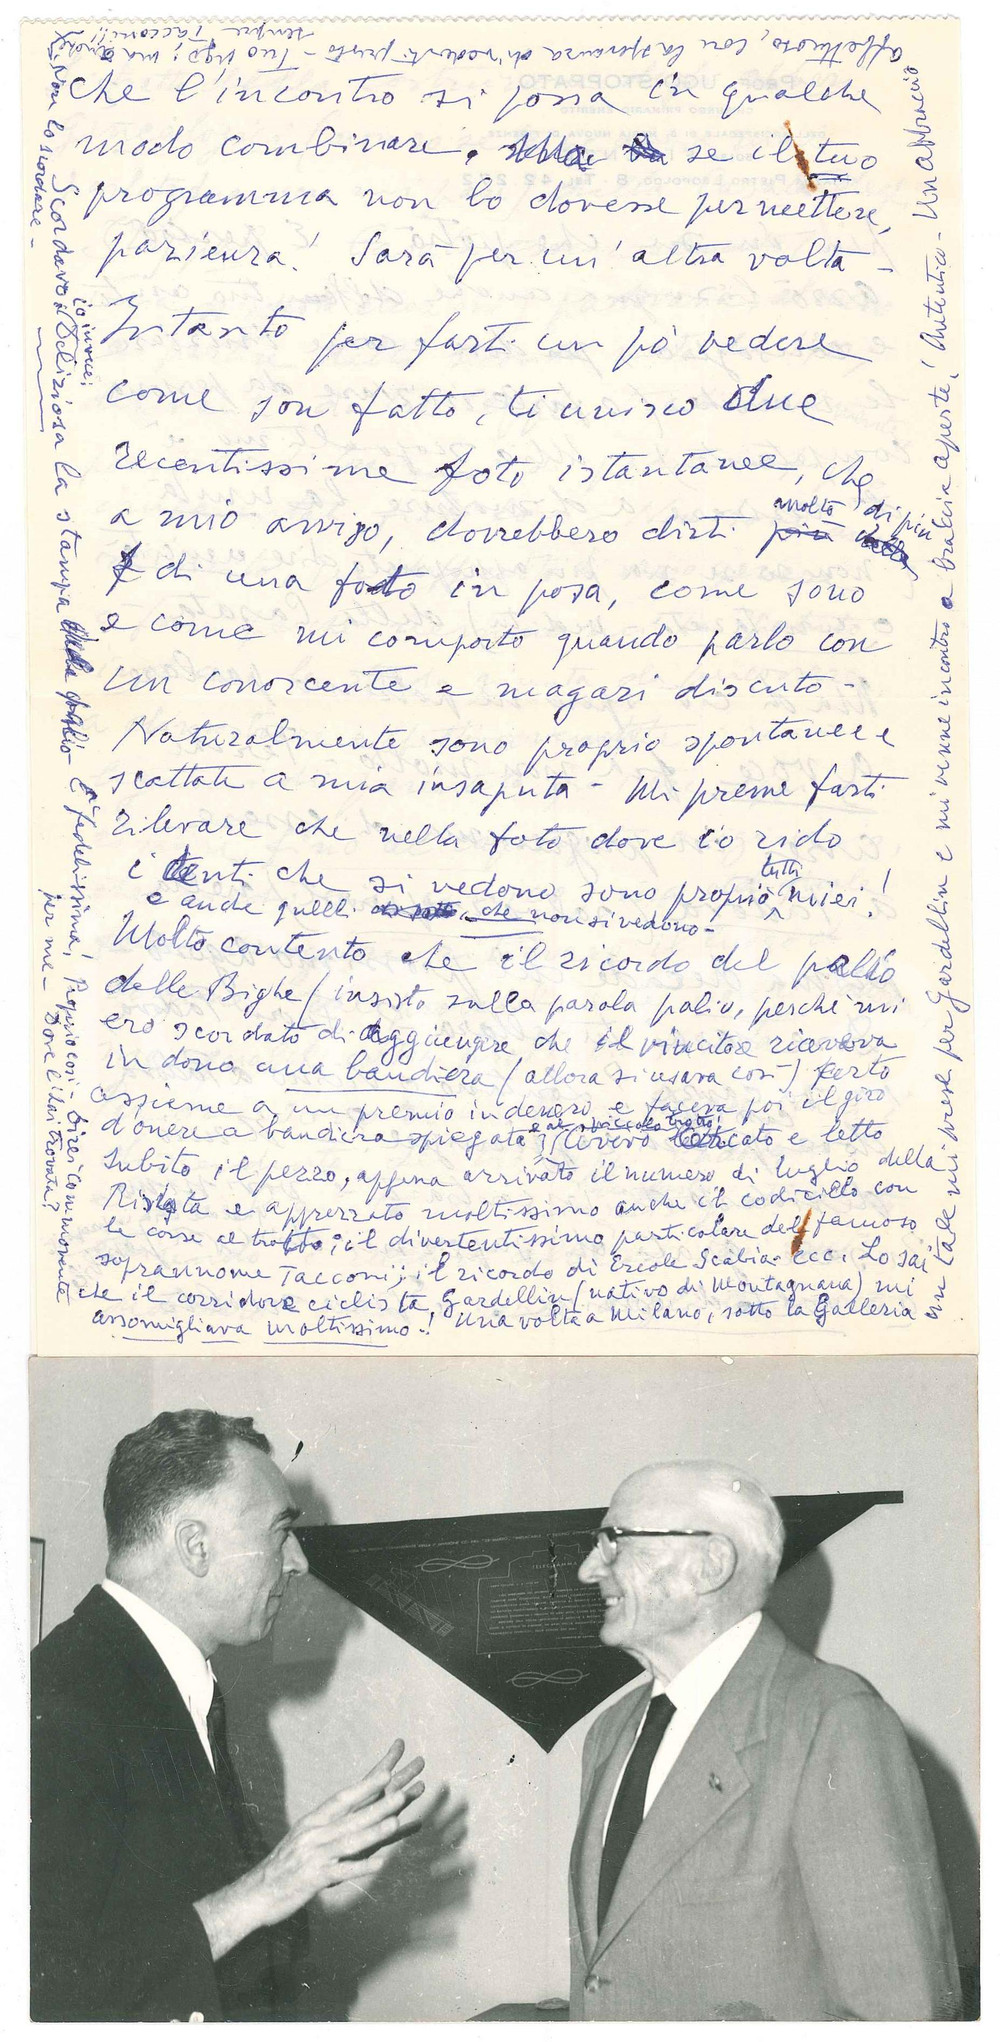 che l'incontro si possa in qualche
modo combinare. se il tuo
programma non lo dovesse permettere,
pazienza! Sarà per un'altra volta -
Intanto per farti un pò vedere
come son fatto, ti unisco due
recentissime foto istantanee, che
a mio avviso, dovrebbero dirti molto di più
di una foto in posa, come sono
e come mi comporto quando parlo con
un conoscente e magari discuto -
Naturalmente sono proprio spontanee e
scattate a mia insaputa - Mi preme farti
rilevare che nella foto dove io rido
i denti che si vedono sono proprio tutti miei!
e anche quelli che non si vedono -
Molto contento che il ricordo del palio
delle Bighe (insisto sulla parola palio, perchè mi
ero scordato di aggiungere che il vincitore riceveva
in dono una bandiera (allora si usava così)
assieme a un premio in denero e faceva poi il giro
d'onere a bandiera spiegata e al piccolo trotto! e letto
subito il pezzo, appena arrivato il numero di luglio della
Rivista e apprezzato moltissimo anche il codicillo con
le corse al trotto; il divertentissimo particolare del famoso
soprannome Tacconi; il ricordo di Ercole Scabia ecc. Lo sai
che il corridore ciclista Gardellin (nativo di Montagnana) mi
assomigliava moltissimo! Una volta a Milano, sotto la Galleria
un tale mi prese per Gardellin e mi venne incontro a braccia aperte! Autentico - Un abbraccio
affettuoso, con la speranza di vederti presto - Tuo Ugo; ma anche
sempre Tacconi!!
Non lo scordare -
io invece
Scordavo: Deliziosa la stampa - È fedelissima! Proprio così - Direi commovente
per me - Dove l'hai trovata?